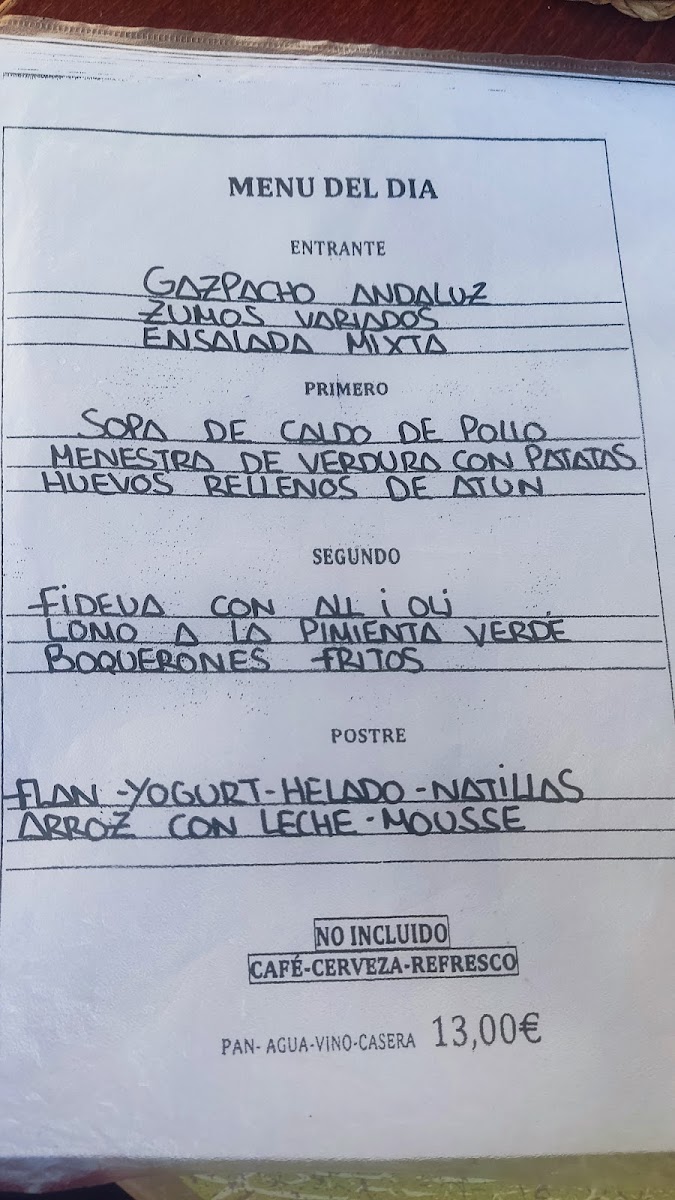 MENU DEL DIA
ENTRANTE
GAZPACHO ANDALUZ
ZUMOS VARIADOS
ENSALADA MIXTA
PRIMERO
SOPA DE CALDO DE POLLO
MENESTRA DE VERDURA CON PATATAS
HUEVOS RELLENOS DE ATUN
SEGUNDO
FIDEUA CON ALL i OLi
LOMO A LA PIMIENTA VERDE
BOQUERONES FRITOS
POSTRE
FLAN-YOGURT-HELADO-NATILLAS
ARROZ CON LECHE-MOUSSE
NO INCLUIDO
CAFÉ-CERVEZA-REFRESCO
PAN- AGUA-VINO-CASERA 13,00€